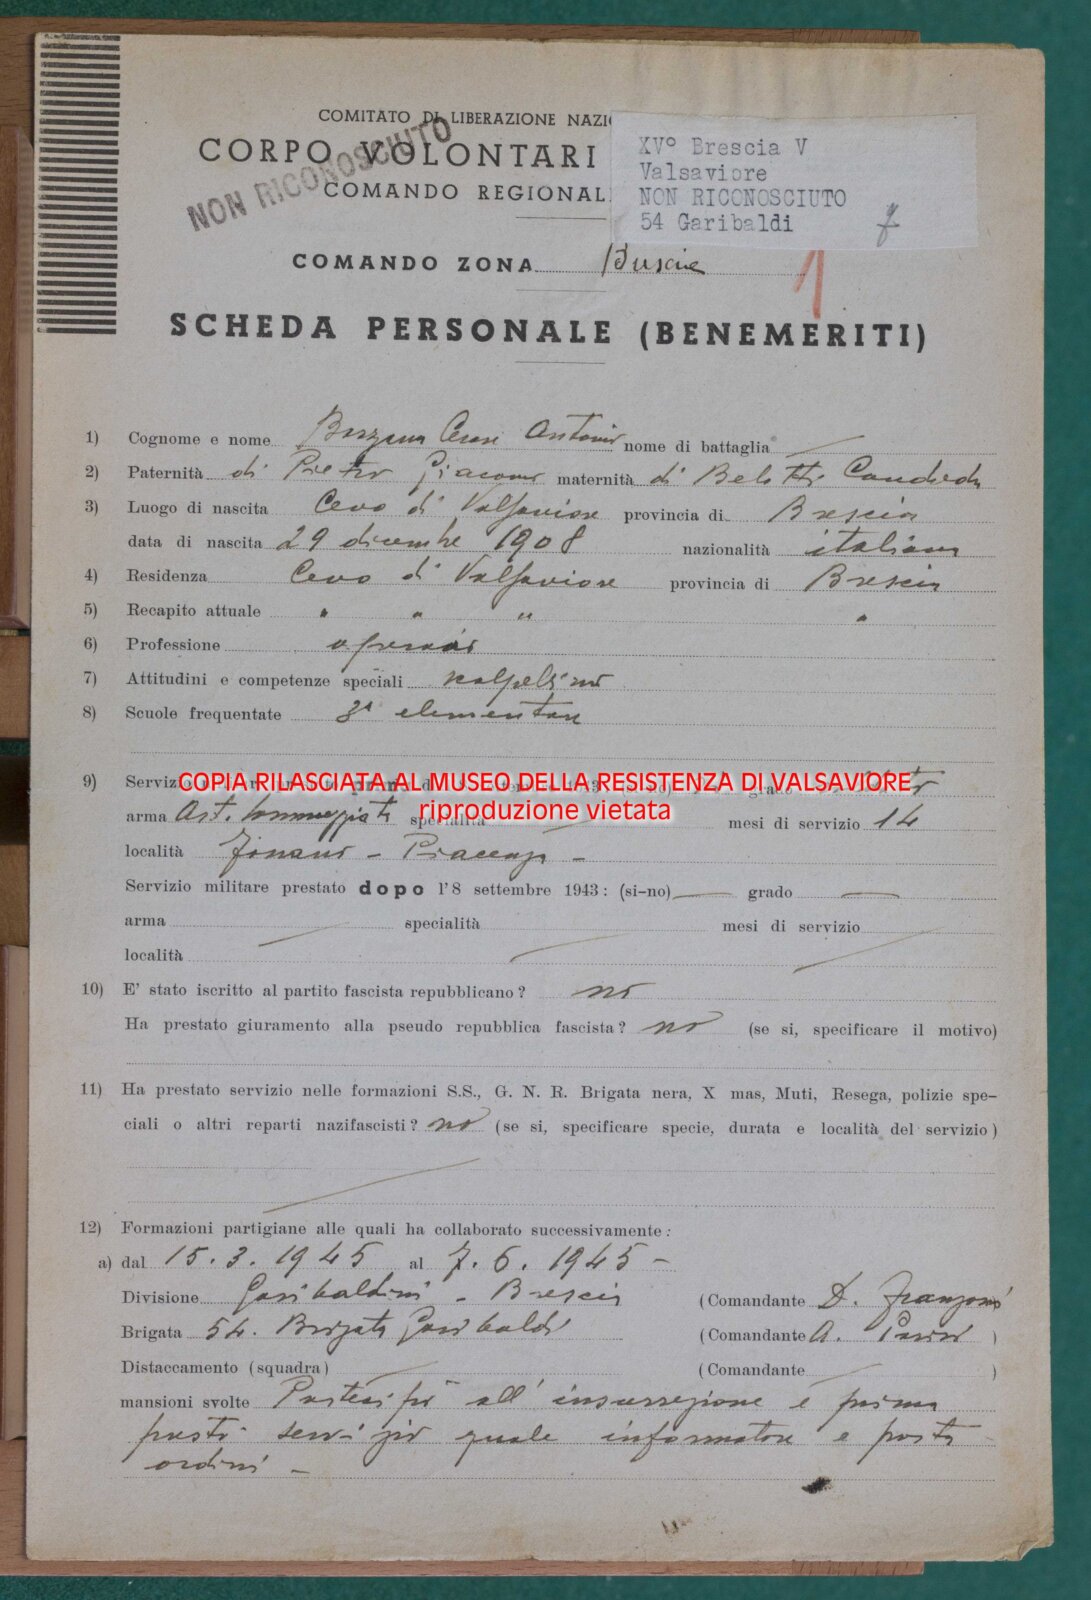 COMITATO DI LIBERAZIONE NAZI
CORPO VOLONTARI
NON RICONOSCIUTO
COMANDO REGIONAL
XV° Brescia V
Valsaviore
NON RICONOSCIUTO
54 Garibaldi
COMANDO ZONA Brescia
1
SCHEDA PERSONALE (BENEMERITI)
1) Cognome e nome Cesare Antonio nome di battaglia
2) Paternità di Pietro Giacomo maternità di Belotti Candida
3) Luogo di nascita Cevo di Valsaviore provincia di Brescia
data di nascita 29 dicembre 1908 nazionalità italiana
4) Residenza Cevo di Valsaviore provincia di Brescia
5) Recapito attuale " " " "
6) Professione operaio
7) Attitudini e competenze speciali scalpellino
8) Scuole frequentate 3ª elementare
9) Servizio
COPIA RILASCIATA AL MUSEO DELLA RESISTENZA DI VALSAVIORE
riproduzione vietata
arma Art. specialità mesi di servizio 14
località - Piacenza -
Servizio militare prestato dopo l'8 settembre 1943: (si-no) grado
arma specialità mesi di servizio
località
10) E' stato iscritto al partito fascista repubblicano? no
Ha prestato giuramento alla pseudo repubblica fascista? no (se si, specificare il motivo)
11) Ha prestato servizio nelle formazioni S.S., G. N. R. Brigata nera, X mas, Muti, Resega, polizie spe-
ciali o altri reparti nazifascisti? no (se si, specificare specie, durata e località del servizio)
12) Formazioni partigiane alle quali ha collaborato successivamente:
a) dal 15.3.1945 al 7.6.1945 -
Divisione Garibaldini - Brescia (Comandante D. Franzoni
Brigata 54. Brigata Garibaldi (Comandante A. )
Distaccamento (squadra) (Comandante )
mansioni svolte Partecipò all'insurrezione e prima
prestò servizio quale informatore e porta
ordini -